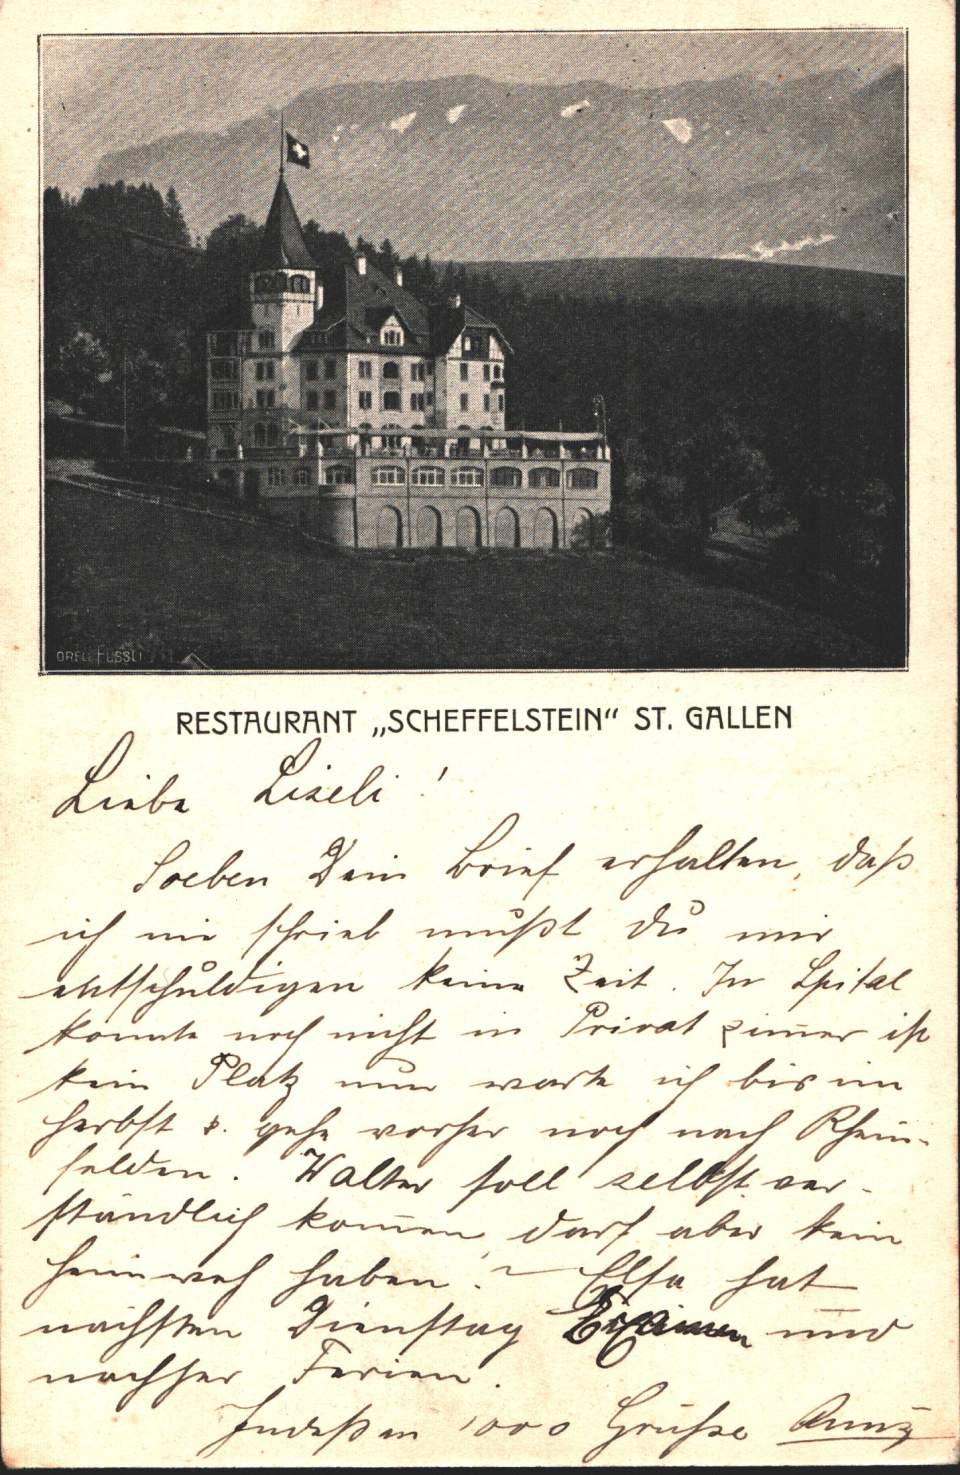 ORELL FÜSSLI
RESTAURANT „SCHEFFELSTEIN“ ST. GALLEN
Liebe Liseli!
Soeben Dein Brief erhalten, daß
ich nie schrieb mußt du mir
entschuldigen keine Zeit. In Spital
konnte noch nicht in Privat zim̅er ist
kein Platz nun warte ich bis im
herbst u. gehe vorher noch nach Rhein-
felden. Walter soll selbstver-
ständlich kom̅en, darf aber kein
heimweh haben! – Elsa hat
nächsten Dienstag Examen und
nachher Ferien.
Indeßen 1000 Grüße